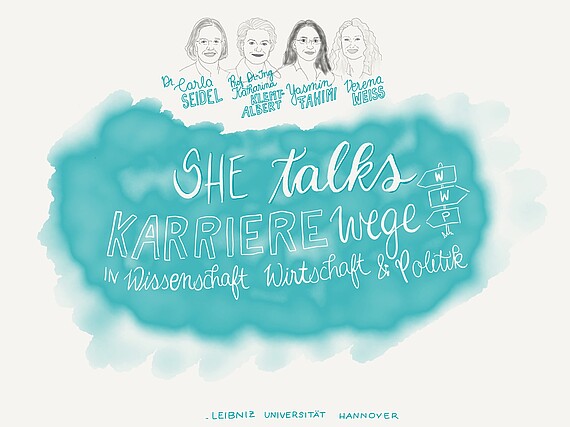 Dr. Carla SEIDEL
Prof. Dr.-Ing. Katharina KLEMT-ALBERT
Yasmin FAHIMI
Verena WEISS
SHE talks
KARRIERE Wege
W
W
P
IN Wissenschaft Wirtschaft & Politik
- LEIBNIZ UNIVERSITÄT HANNOVER